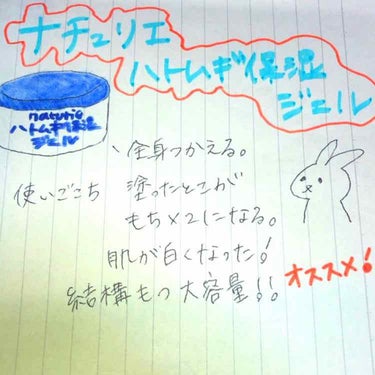 ナチュリエ
ハトムギ保湿
ジェル
naturie
ハトムギ保湿
ジェル
全身つかえる。
使いごこち 塗ったとこが
もち×2になる。
肌が白くなった!
オススメ!
結構もつ大容量!!